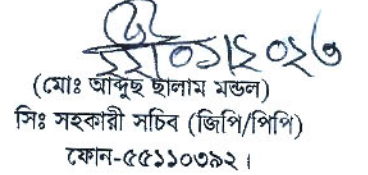 ২২।০১।২০২৬
(মোঃ আব্দুছ ছালাম মন্ডল)
সিঃ সহকারী সচিব (জিপি/পিপি)
ফোন-৫৫১১০৩৯২।